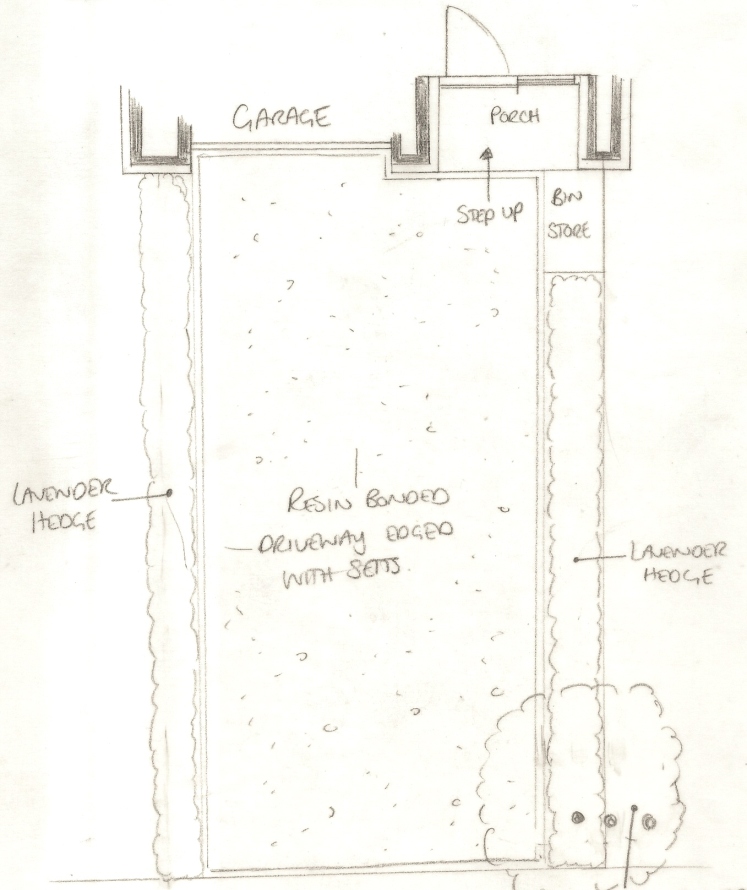 GARAGE
PORCH
STEP UP
BIN
STORE
LAVENDER
HEDGE
RESIN BONDED
DRIVEWAY EDGED
WITH SETTS
LAVENDER
HEDGE